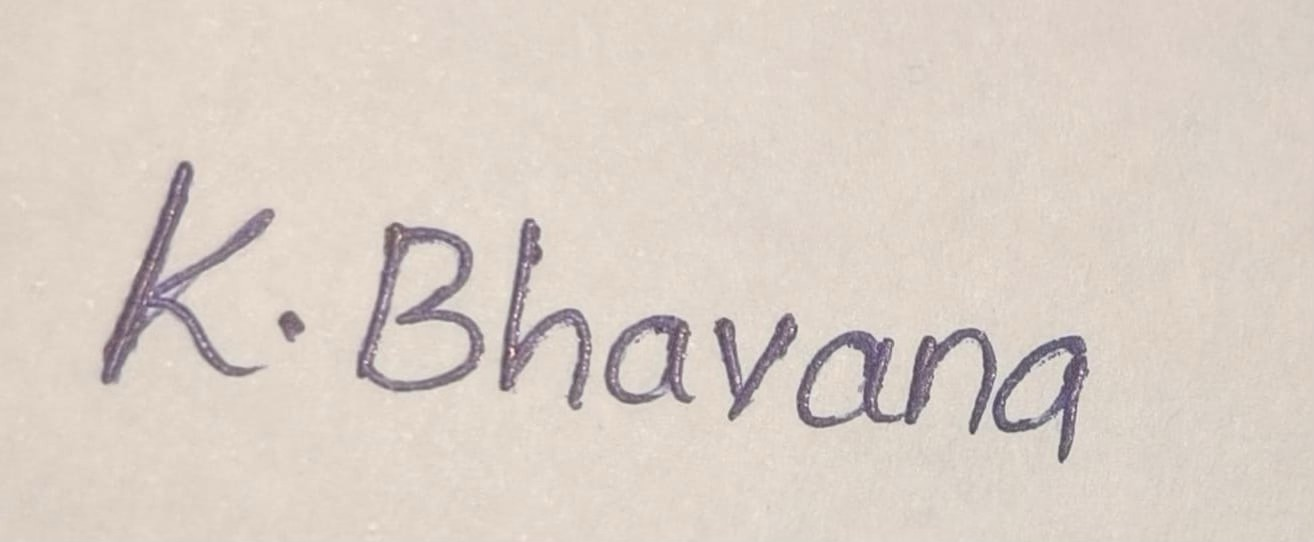 K. Bhavana